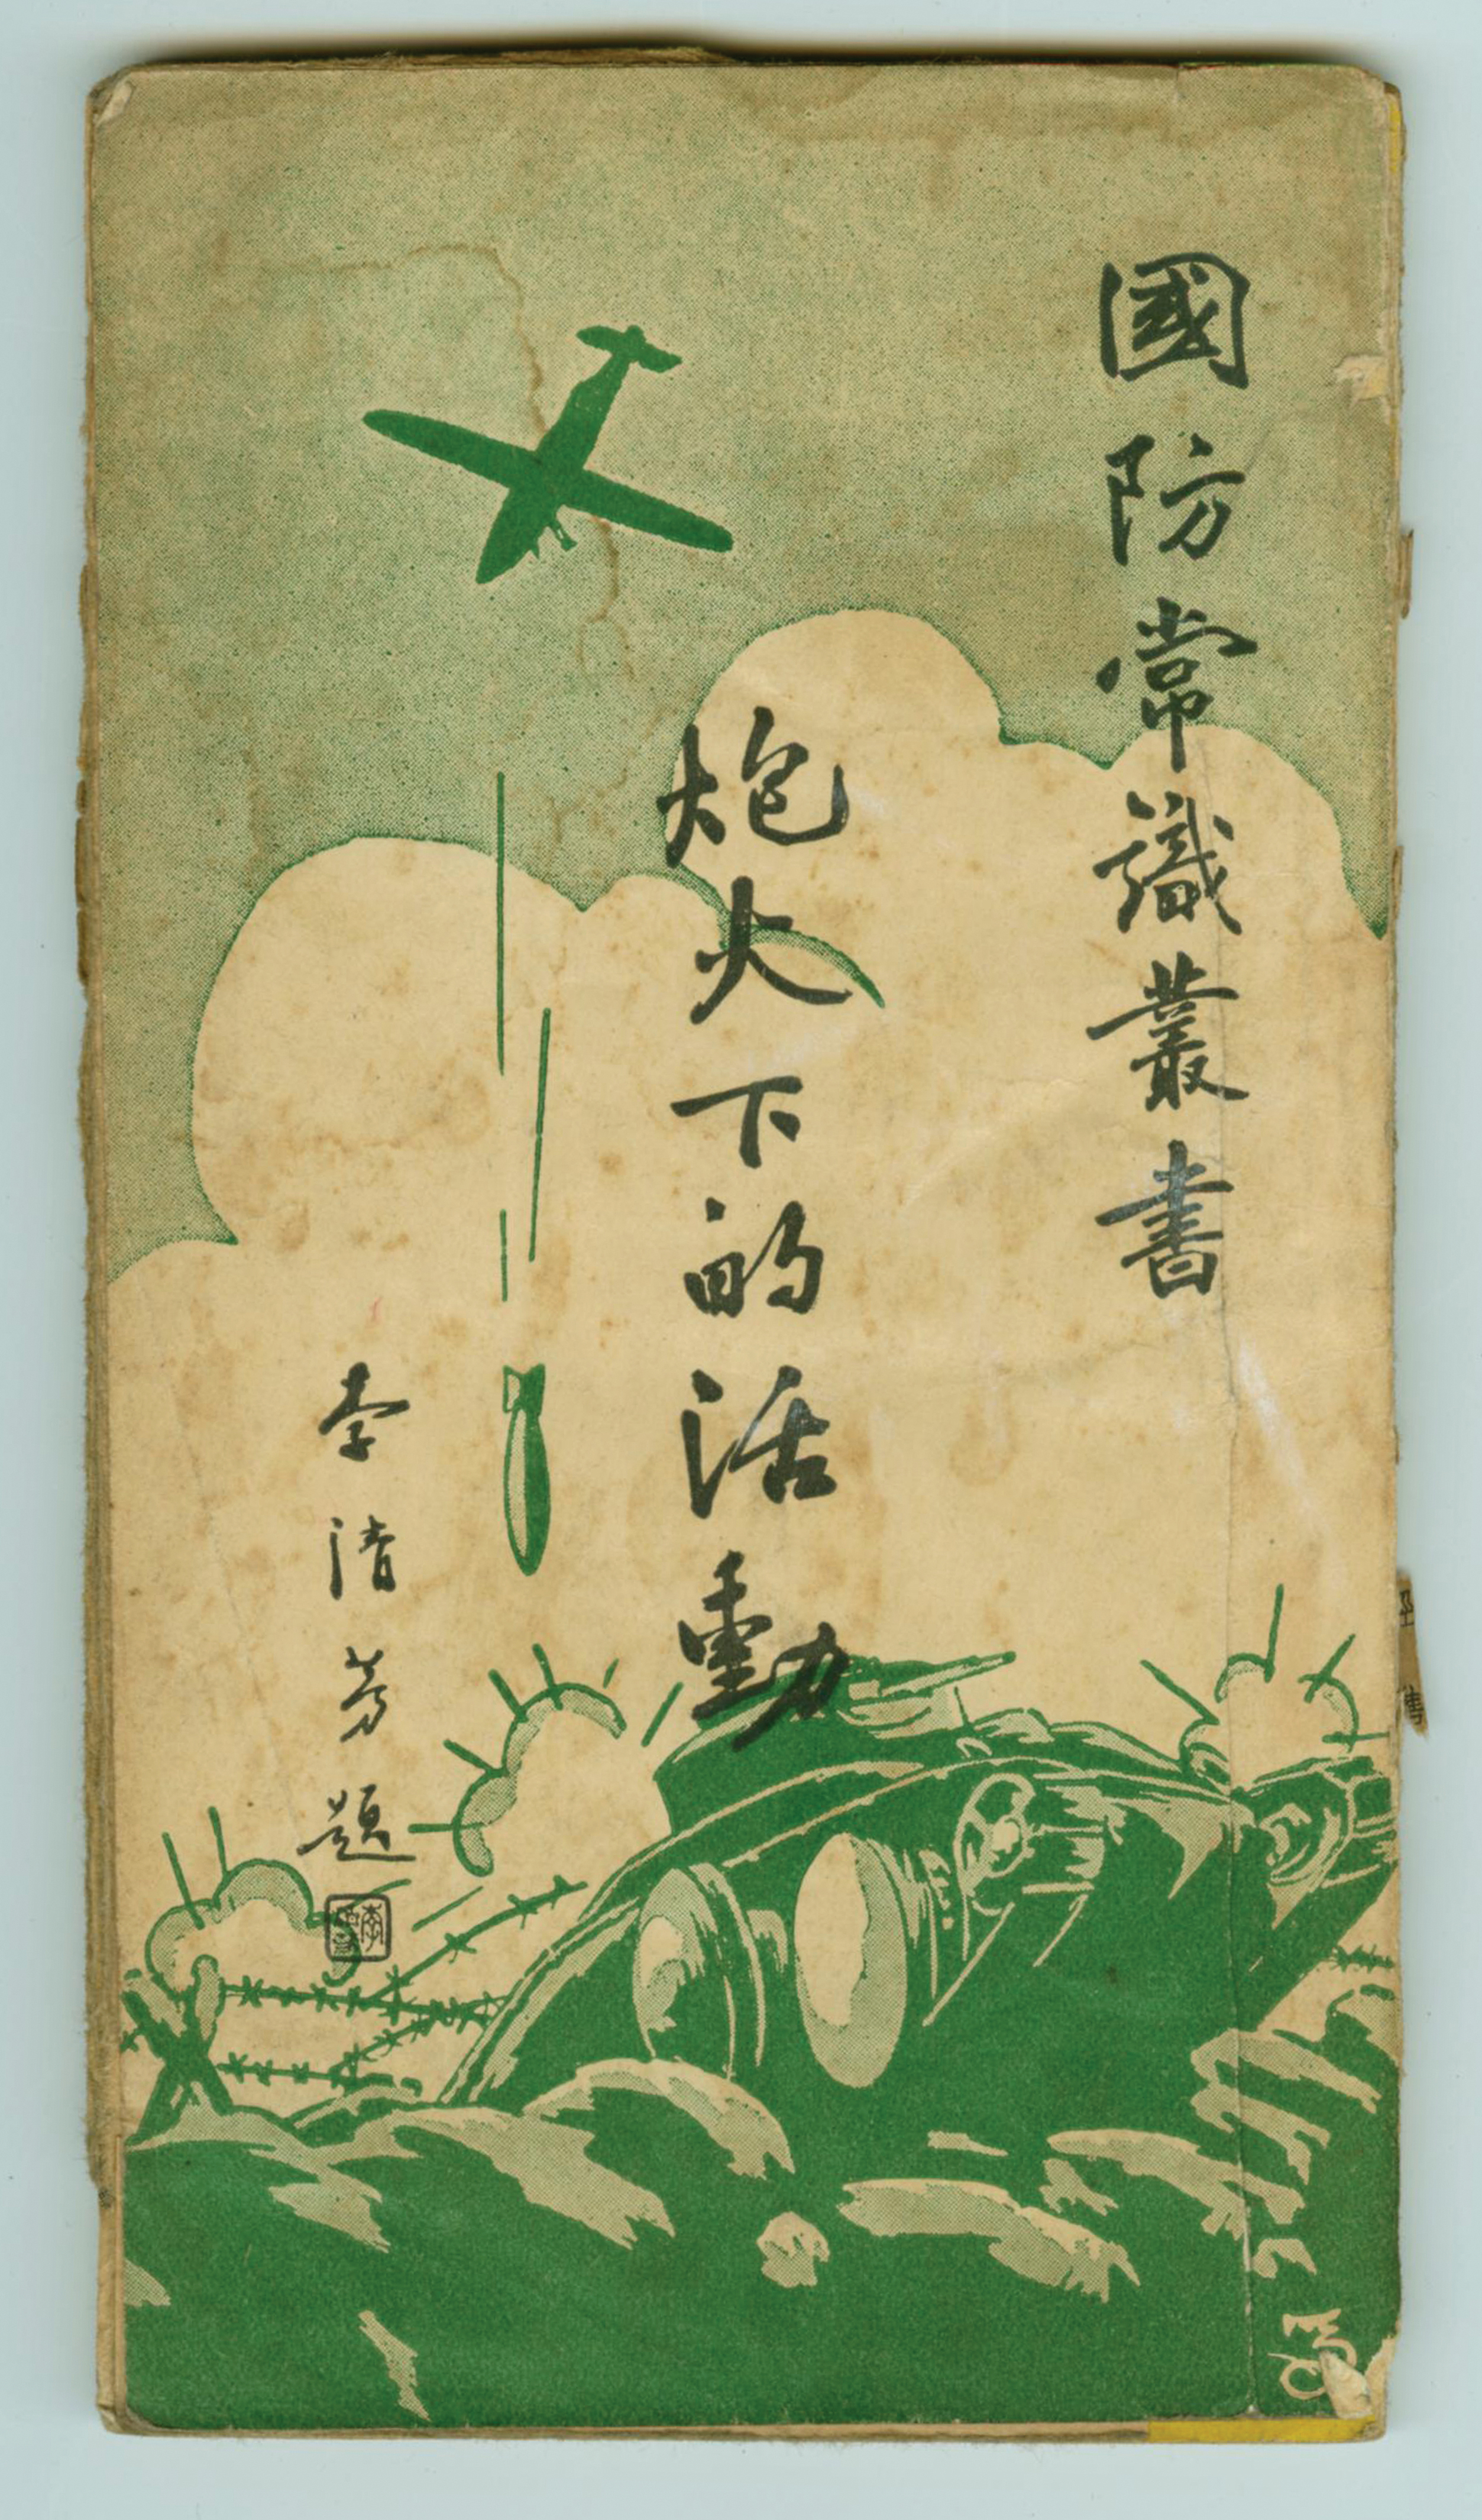 國防常識叢書
炮火下的活動
李清芳題